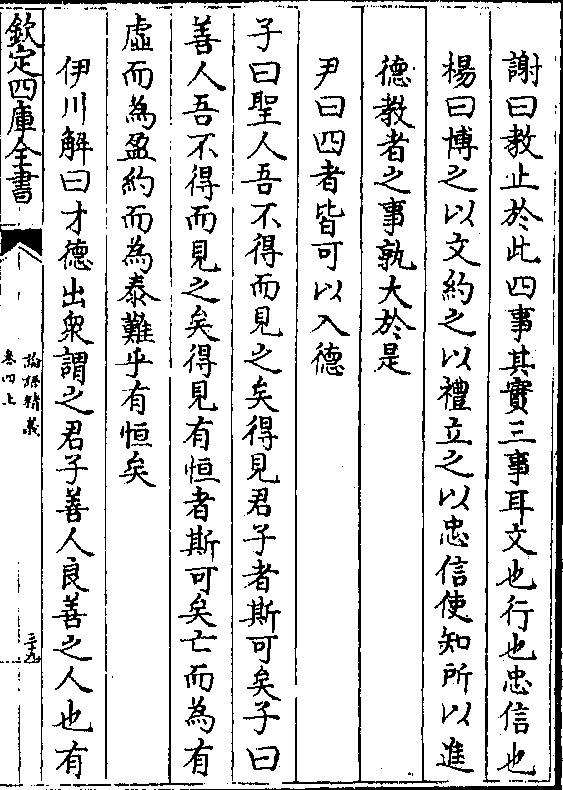 謝曰教止於此四事其實三事耳文也行也忠信也
楊曰博之以文約之以禮立之以忠信使知所以進
德教者之事孰大於是
尹曰四者皆可以入德
子曰聖人吾不得而見之矣得見君子者斯可矣子曰
善人吾不得而見之矣得見有恒者斯可矣亡而為有
虛而為盈約而為泰難乎有恒矣
伊川解曰才德出衆謂之君子善人良善之人也有
欽定四庫全書
論語精義
卷四上
三十九